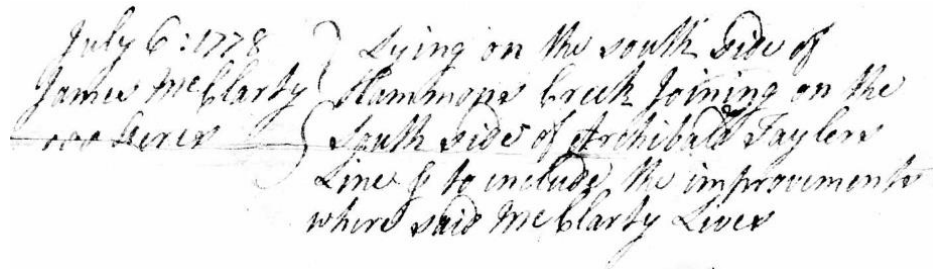 July 6: 1778
James McClarty
100 Acres
Lying on the south Side of
Hammons Creek Joining on the
South side of Archibald Taylers
Line & to include the improvements
where said McClarty Lives